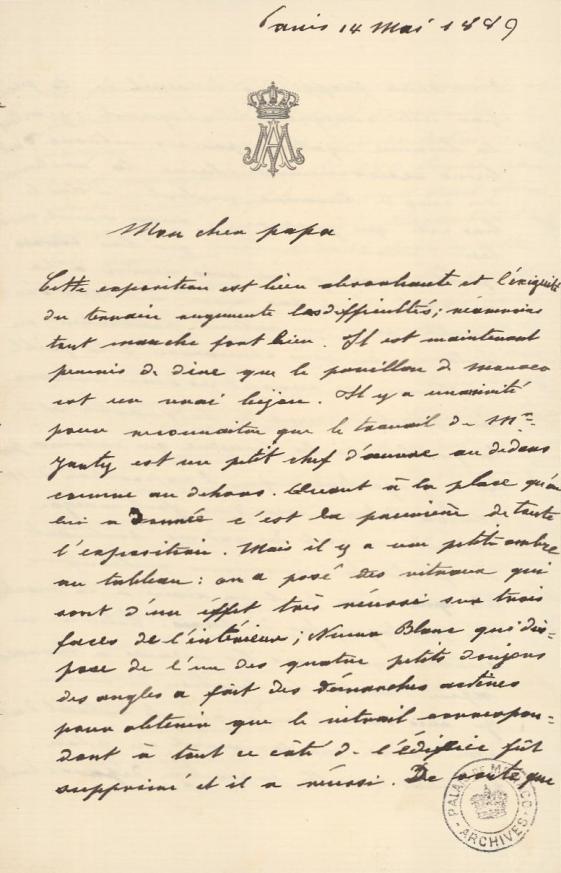 Paris 14 Mai 1889
Mon cher papa
Cette exposition est bien absorbante et l'exiguité
du terrain augmente les difficultés; néanmoins
tout marche fort bien. Il est maintenant
permis de dire que le pavillon de Monaco
est un vrai bijou. Il y a unanimité
pour reconnaitre que le travail de Mr.
Janty est un petit chef d'œuvre au dedans
comme au dehors. Quant à la place qu'on
lui a donnée c'est la première de toute
l'exposition. Mais il y a une petite ombre
au tableau: on a posé des vitraux qui
sont d'un effet très réussi sur trois
faces de l'intérieur; Numa Blanc qui dis=
pose de l'un des quatre petits donjons
des angles a fait des démarches actives
pour obtenir que le vitrail correspon=
dant à tout ce côté de l'édifice fût
supprimé et il a réussi. De sorte que
PALAIS DE MONACO
ARCHIVES